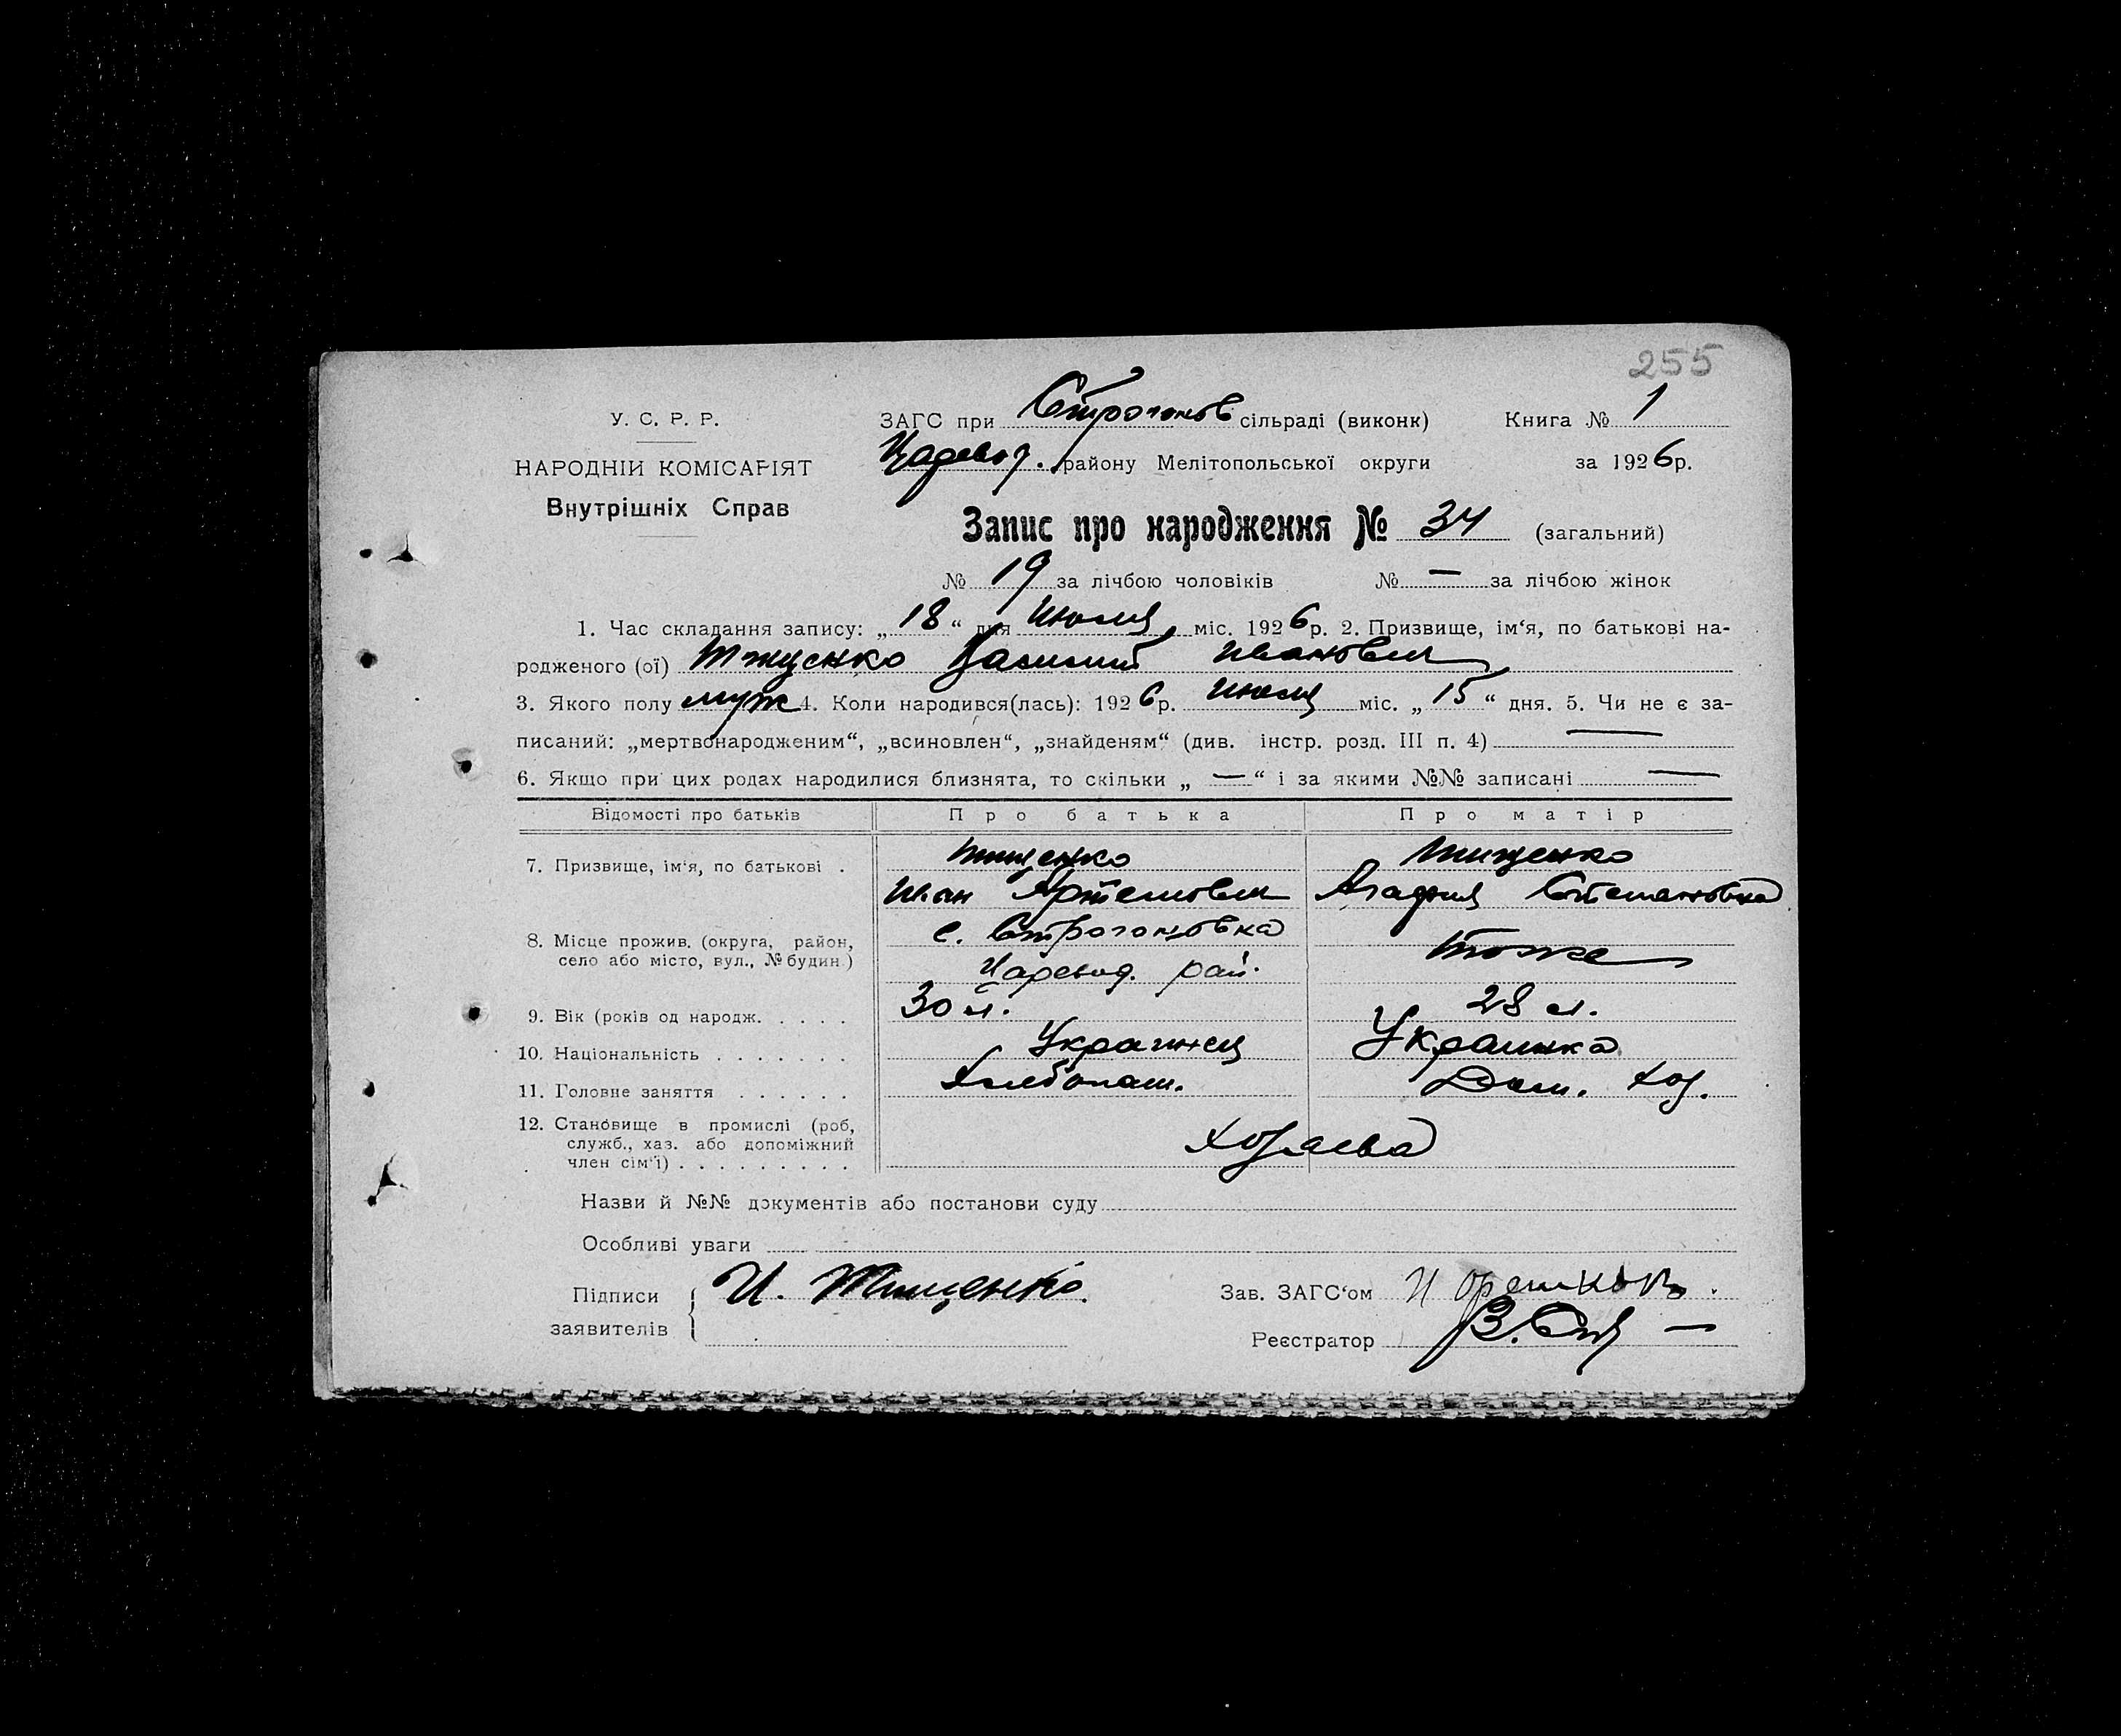 255
У. С. Р. Р.
НАРОДНІЙ КОМІСАРІЯТ
Внутрішніх Справ
ЗАГС при Строганов сільраді (виконк) Книга № 1
району Мелітопольської округи за 1926р.
Запис про народження № 34 (загальний)
№ 19 за лічбою чоловіків № — за лічбою жінок
1. Час складання запису: „18“ дня Июля міс. 1926р. 2. Призвище, ім‘я, по батькові на-
родженого (ої) Тищенко Василий Иванович
3. Якого полу муж 4. Коли народився(лась): 1926р. Июля міс. „15“ дня. 5. Чи не є за-
писаний: „мертвонародженим“, „всиновлен“, „знайденям“ (див. інстр. розд. III п. 4) —
6. Якщо при цих родах народилися близнята, то скільки „—“ і за якими №№ записані —
Відомості про батьків Про батька Про матір
7. Призвище, ім‘я, по батькові . Тищенко Тищенко
Иван Артемович Агафия Степановна
8. Місце прожив. (округа, район, с. Строгоновка тоже
село або місто, вул., № будин.) Царевод. рай.
9. Вік (років од народж. . . . . 30 л. 28 л.
10. Національність . . . . . . . Украинец Украинка
11. Головне заняття . . . . . . Хлебопаш. Дом. хоз.
12. Становище в промислі (роб,
служб., хаз. або допоміжний
член сім‘ї) . . . . . . . . . Хозяева
Назви й №№ документів або постанови суду
Особливі уваги
Підписи
заявителів И. Тищенко.
Зав. ЗАГС‘ом
Реєстратор